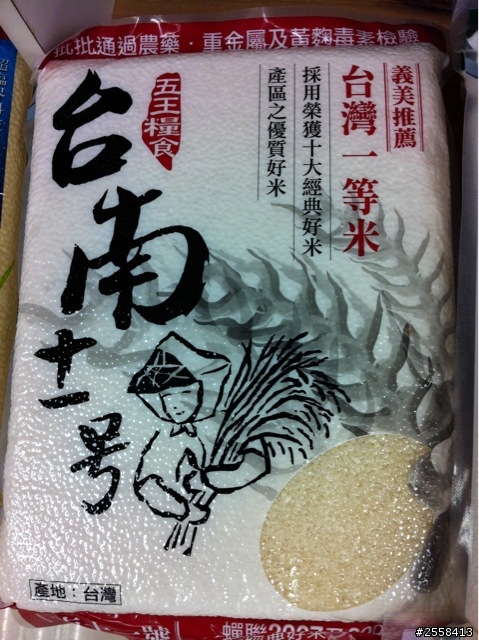 批批通過農藥・重金屬及黃麴毒素檢驗
義美推薦
台灣一等米
採用榮獲十大經典好米
產區之優質好米
五王糧食
台南
十一号
產地：台灣
蟬聯2007
#2558413